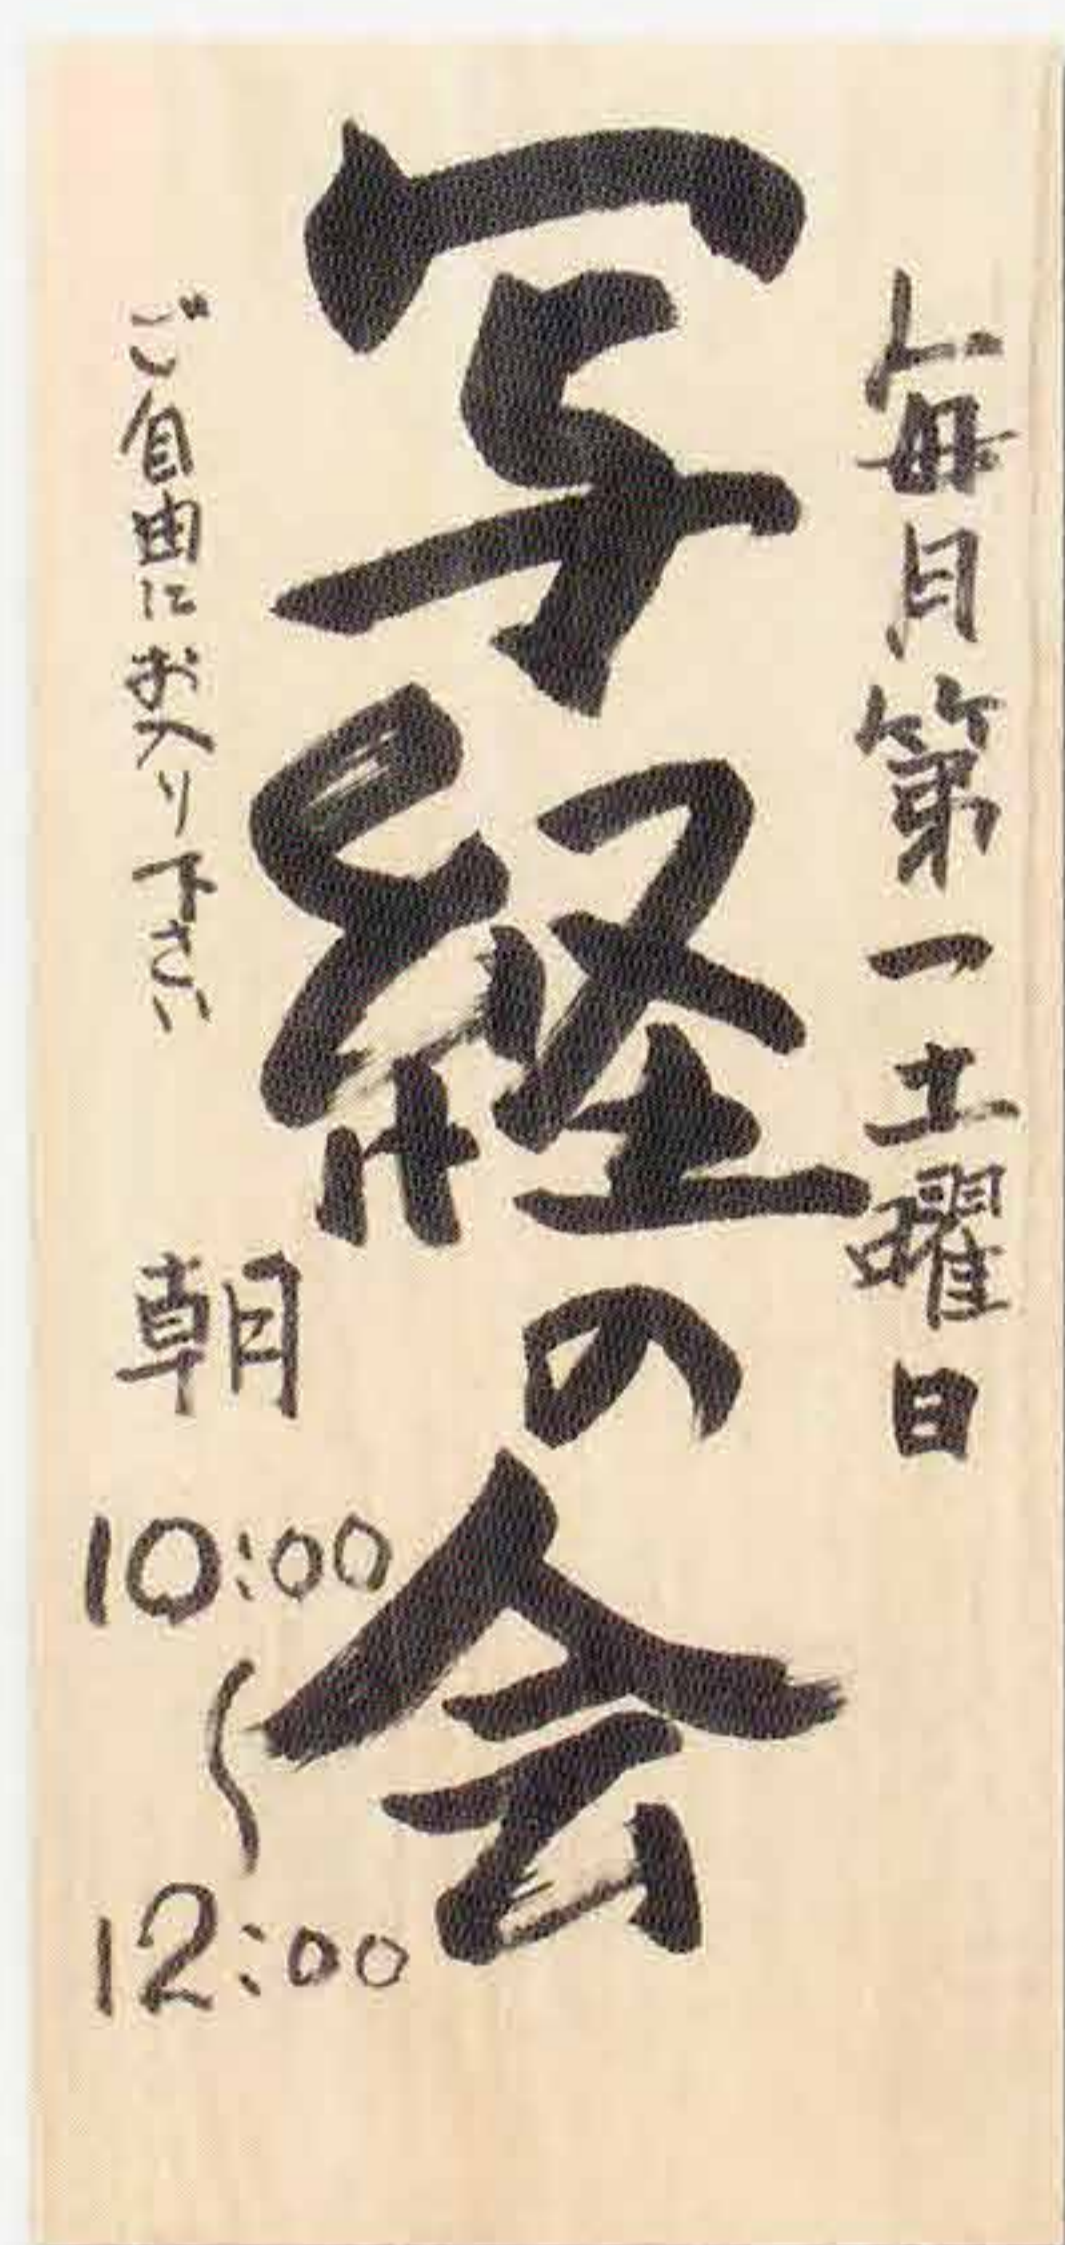 毎月第一土曜日
写経の会
ご自由にお入り下さい
朝
10:00
〜
12:00